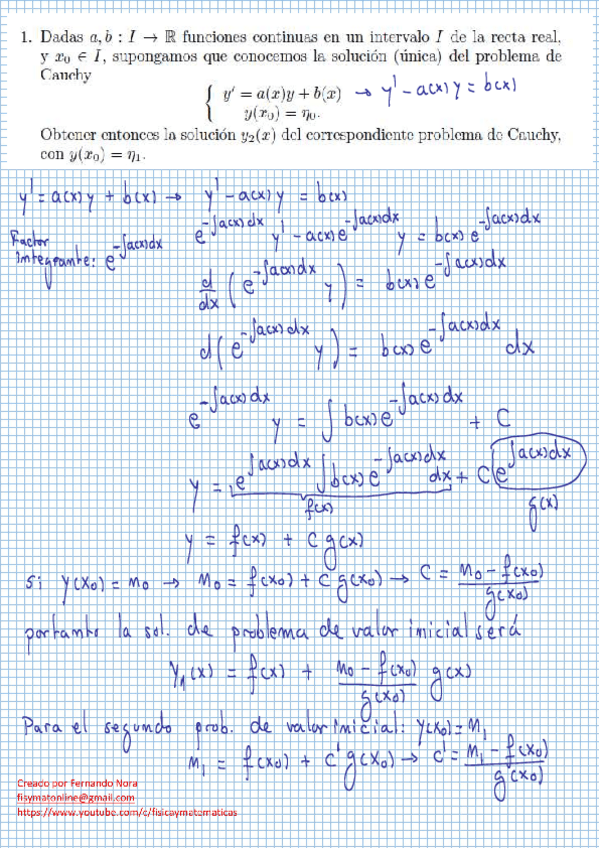 1. Dadas a, b : I → ℝ funciones continuas en un intervalo I de la recta real,
y x₀ ∈ I, supongamos que conocemos la solución (única) del problema de
Cauchy
{ y′ = a(x)y + b(x) → y' - a(x) y = b(x)
y(x₀) = η₀.
Obtener entonces la solución y₂(x) del correspondiente problema de Cauchy,
con y(x₀) = η₁.
y' = a(x) y + b(x) → y' - a(x) y = b(x)
e^{-∫a(x)dx} y' - a(x) e^{-∫a(x)dx} y = b(x) e^{-∫a(x)dx}
Factor
Integrante: e^{-∫a(x)dx}
d/dx (e^{-∫a(x)dx} y) = b(x) e^{-∫a(x)dx}
d(e^{-∫a(x)dx} y) = b(x) e^{-∫a(x)dx} dx
e^{-∫a(x)dx} y = ∫ b(x) e^{-∫a(x)dx} + C
y = e^{∫a(x)dx} ∫ b(x) e^{-∫a(x)dx} dx + C e^{∫a(x)dx}
f(x) g(x)
y = f(x) + C g(x)
Si y(x₀) = M₀ → M₀ = f(x₀) + C g(x₀) → C = (M₀ - f(x₀))/g(x₀)
portanto la sol. de problema de valor inicial será
y₁(x) = f(x) + (M₀ - f(x₀))/g(x₀) g(x)
Para el segundo prob. de valor inicial: y(x₀) = M₁
M₁ = f(x₀) + C' g(x₀) → C' = (M₁ - f(x₀))/g(x₀)
Creado por Fernando Nora
fisymatonline@gmail.com
https://www.youtube.com/c/fisicaymatematicas